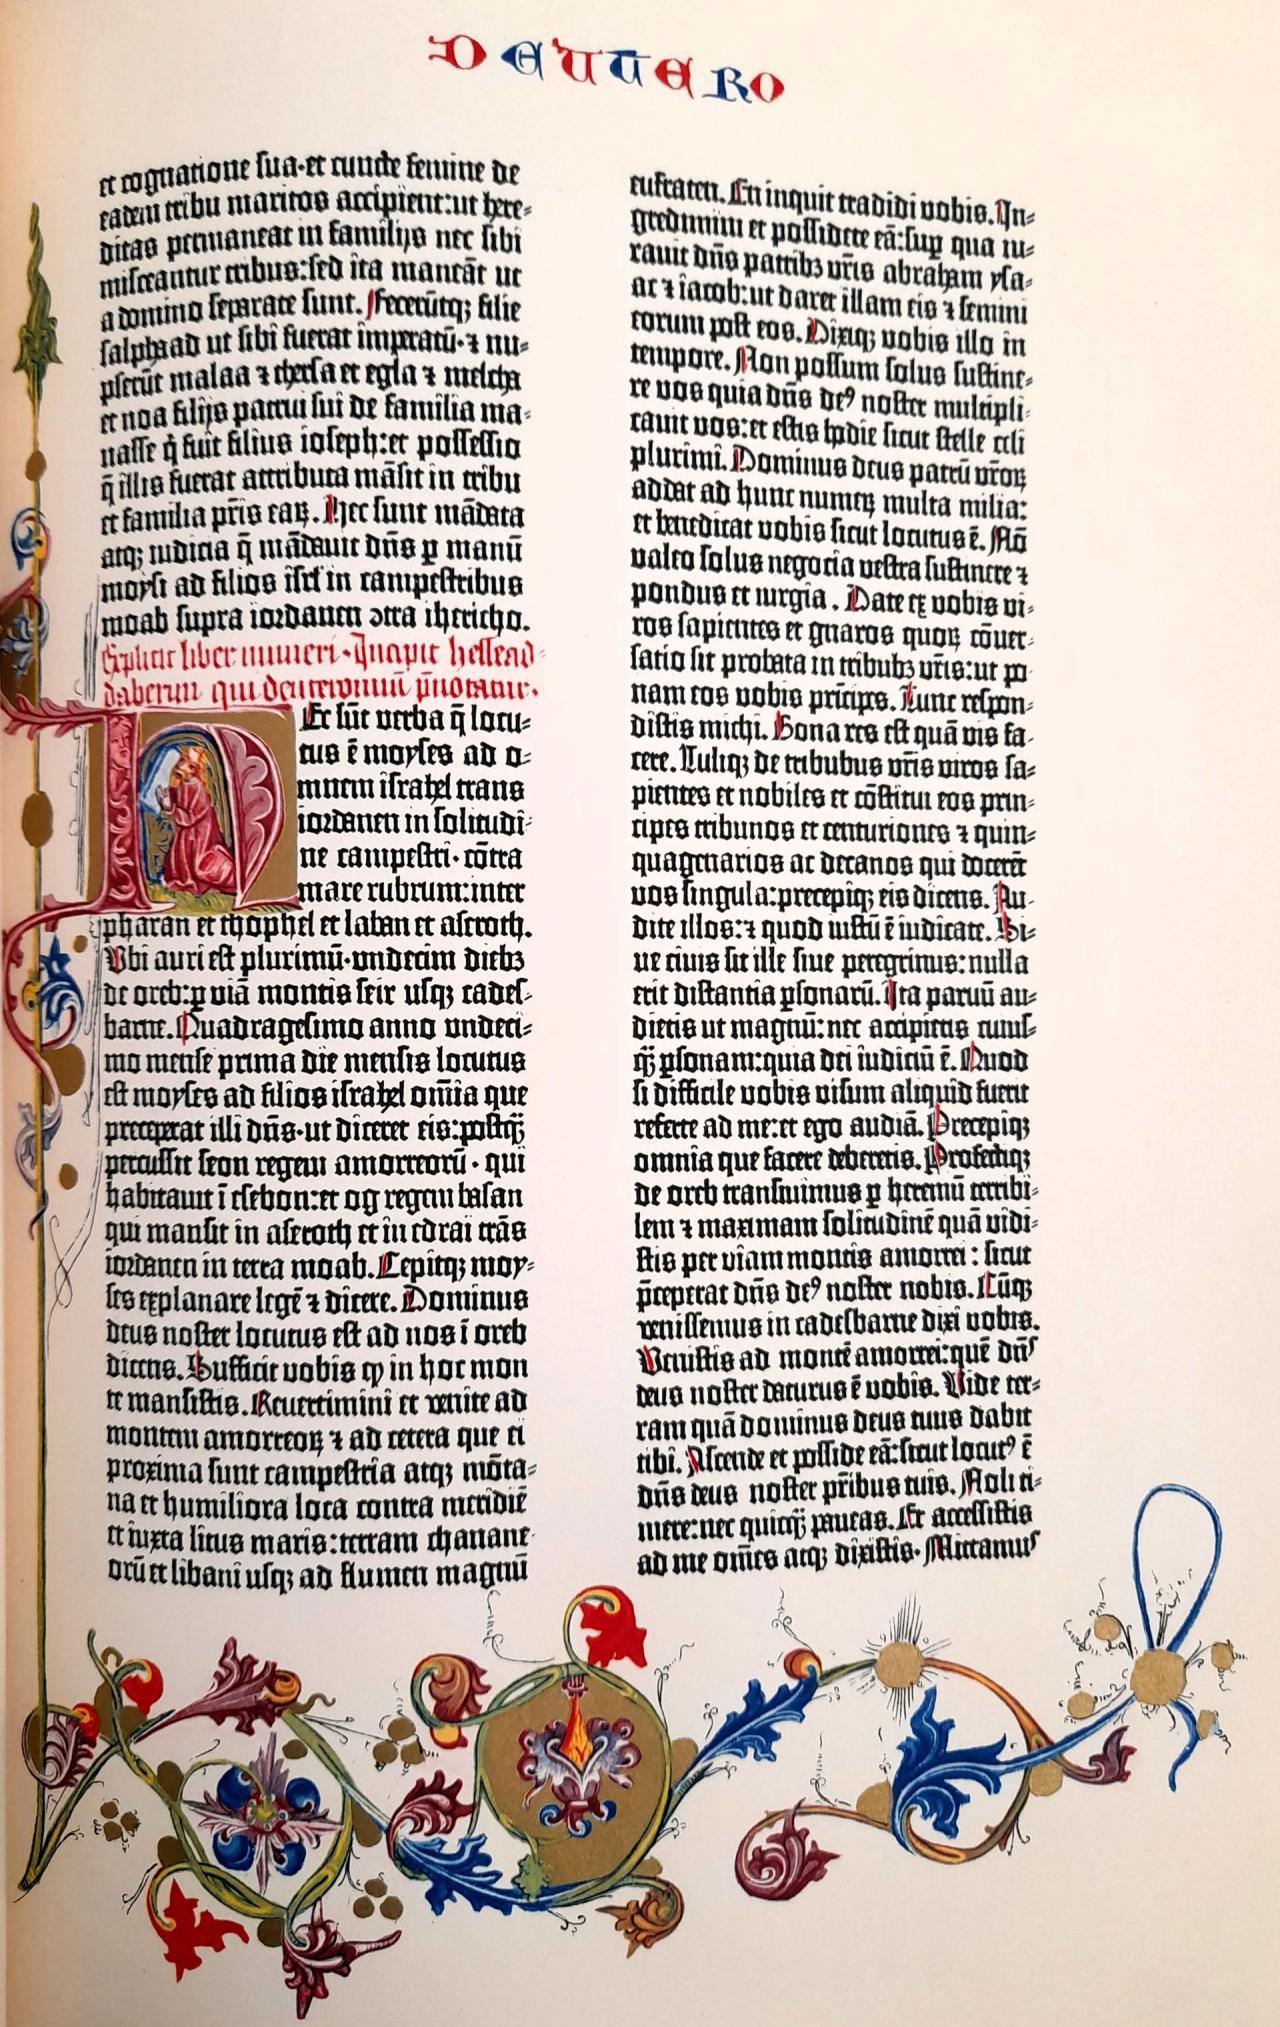 DEUTERO
et cognatione sua·et cuncte femine de
eadem tribu maritos accipient:ut here-
ditas permaneat in familijs nec sibi
misceantur tribus:sed ita maneāt ut
a domino separate sunt. Fecerūtq; filie
salphaad ut sibi fuerat imperatū·⁊ nu-
pserūt malaa ⁊ thersa et egla ⁊ melcha
et noa filijs patrui sui de familia ma-
nasse q̇ fuit filius ioseph:et possessio
q̄ illis fuerat attributa māsit in tribu
et familia pr̄is eaꝝ. Hec sunt mādata
atq; iudicia q̄ mādauit dn̄s ꝑ manū
moysi ad filios isrl' in campestribus
moab supra iordanen ↄtra ihericho.
Explicit liber numeri·Incipit hellead-
dabarim qui deuteronomiū p̄notatur.
Ec sūt verba q̄ locu-
tus ē moyses ad o-
mnem israhel trans
iordanen in solitudi-
ne campestri·cōtra
mare rubrum:inter
pharan et thophel et laban et aseroth.
Vbi auri est plurimū·vndecim diebꝫ
de oreb:ꝑ viā montis seir usq; cades-
barne. Quadragesimo anno vndeci-
mo mense prima die mensis locutus
est moyses ad filios israhel om̄ia que
preceperat illi dn̄s·ut diceret eis:postq̄ꝫ
percussit seon regem amorreorū·qui
habitauit ī esebon:et og regem basan
qui mansit in aseroth et in edrai trās
iordanen in terra moab. Cepitq; moy-
ses explanare legē ⁊ dicere. Dominus
deus noster locutus est ad nos ī oreb
dicens. Sufficit vobis ꝙ in hoc mon
te mansistis. Reuertimini et venite ad
montem amorreoꝝ ⁊ ad cetera que ei
proxima sunt campestria atq; mōta-
na et humiliora loca contra meridiē
et iuxta litus maris:terram chanane-
orū et libani usq; ad flumen magnū
eufraten. En inquit tradidi vobis. In-
gredimini et possidete eā:sup̄ qua iu-
rauit dn̄s patribꝫ vr̄is abraham ysa-
ac ⁊ iacob:ut daret illam eis ⁊ semini
eorum post eos. Dixiq; vobis illo in
tempore. Non possum solus sustine-
re vos quia dn̄s deꝰ noster multipli-
cauit vos:et estis hodie sicut stelle celi
plurimi. Dominus deus patrū vr̄oꝝ
addat ad hunc numeꝝ multa milia:
et benedicat vobis sicut locutus ē. Nō
valeo solus negocia vestra sustinere ⁊
pondus et iurgia. Date ex vobis vi-
ros sapientes et gnaros quoꝝ cōuer-
satio sit probata in tribubꝫ vr̄is:ut po
nam eos vobis prīcipes. Tunc respon-
distis michi. Bona res est quā vis fa-
cere. Tuliq; de tribubus vr̄is viros sa-
pientes et nobiles et cōstitui eos prin-
cipes tribunos et centuriones ⁊ quin-
quagenarios ac decanos qui docerēt
vos singula:precepiq; eis dicens. Au-
dite illos:⁊ quod iustū ē iudicate. Si-
ue ciuis sit ille siue peregrinus:nulla
erit distantia ꝑsonarū. Ita paruū au-
dietis ut magnū:nec accipietis cuius-
q̄ꝫ ꝑsonam:quia dei iudiciū ē. Quod
si difficile vobis visum aliquid fuerit
referte ad me:et ego audiā. Precepiq;
omnia que facere deberetis. Profectiq;
de oreb transiuimus ꝑ heremū terribi-
lem ⁊ maximam solitudinē quā vidi-
stis per viam montis amorrei: sicut
p̄ceperat dn̄s deꝰ noster nobis. Cūq;
venissemus in cadesbarne dixi vobis.
Venistis ad montē amorrei:quē dn̄s
deus noster daturus ē vobis. Vide ter-
ram quā dominus deus tuus dabit
tibi. Ascende et posside eā:sicut locutꝰ ē
dn̄s deus noster pr̄ibus tuis. Noli ti-
mere:nec quicq̄ꝫ paueas. Et accessistis
ad me om̄es atq; dixistis·Mittamꝰ